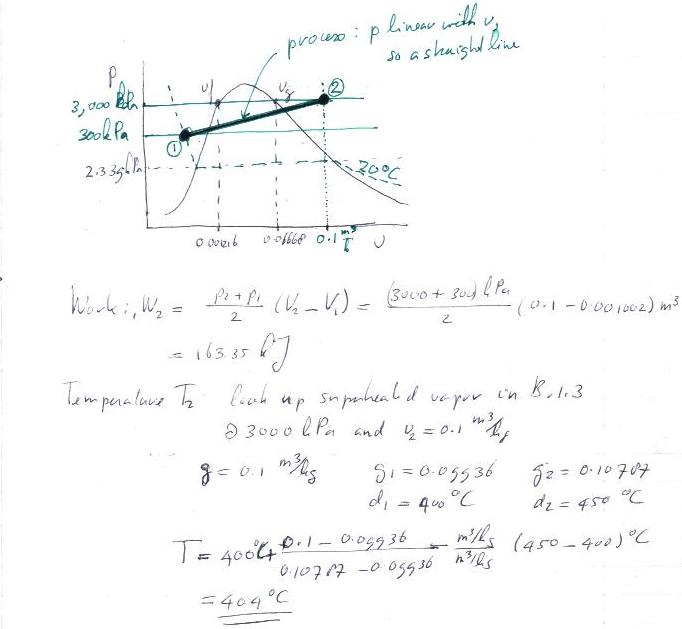 process: p linear with v,
so a straight line
P
3,000 kPa
vf
vg
②
300 kPa
①
2.339 kPa
20°C
0.001216
0.06668
0.1 m³
v
Work: ₁W₂ = (P₂ + P₁)/2 (V₂ - V₁) = (3000 + 300) kPa/2 (0.1 - 0.001002) m³
= 163.35 kJ
Temperature T₂ look up superheated vapor in B.1.3
@ 3000 kPa and v₂ = 0.1 m³/kg
g = 0.1 m³/kg g₁ = 0.09936 g₂ = 0.10787
d₁ = 400 °C d₂ = 450 °C
T = 400°C + (0.1 - 0.09936)/(0.10787 - 0.09936) (m³/kg)/(m³/kg) (450 - 400)°C
= 404°C